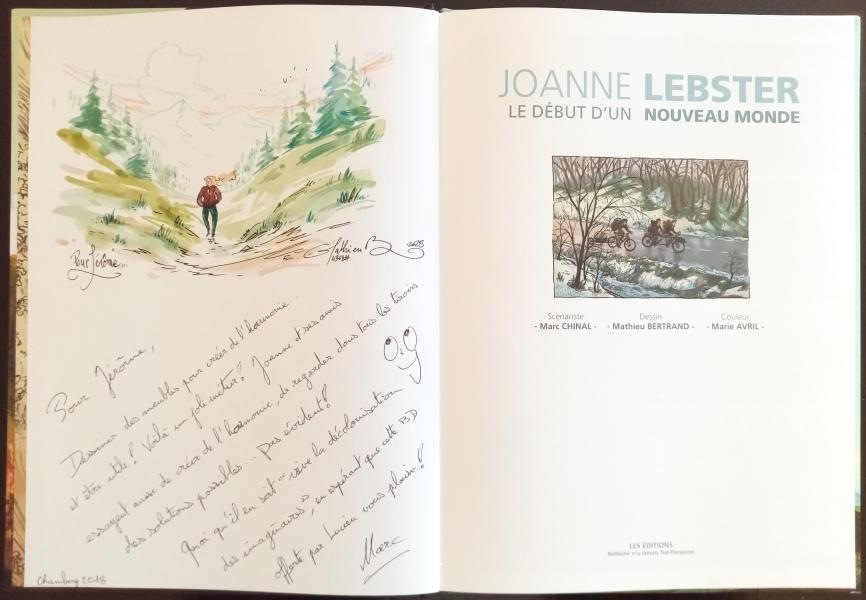 Pour Jérôme...
Mathieu B
2025
Pour Jérôme,
Dessiner des meubles pour créer de l'harmonie
et être utile! Voilà un joli métier! Joanne et ses amis
essayent aussi de créer de l'harmonie, de regarder dans tous les tiroirs
des solutions possibles... pas évident!
Quoi qu'il en soit "vive la décolonisation
des imaginaires", en espérant que cette BD
offerte par Lucien vous plaise!
Marc
Chambéry 2018
JOANNE LEBSTER
LE DÉBUT D'UN NOUVEAU MONDE
Scénariste
- Marc CHINAL -
Dessin
- Mathieu BERTRAND -
Couleur
- Marie AVRIL -
LES ÉDITIONS
Réfléchir n'a Jamais Tué Personne